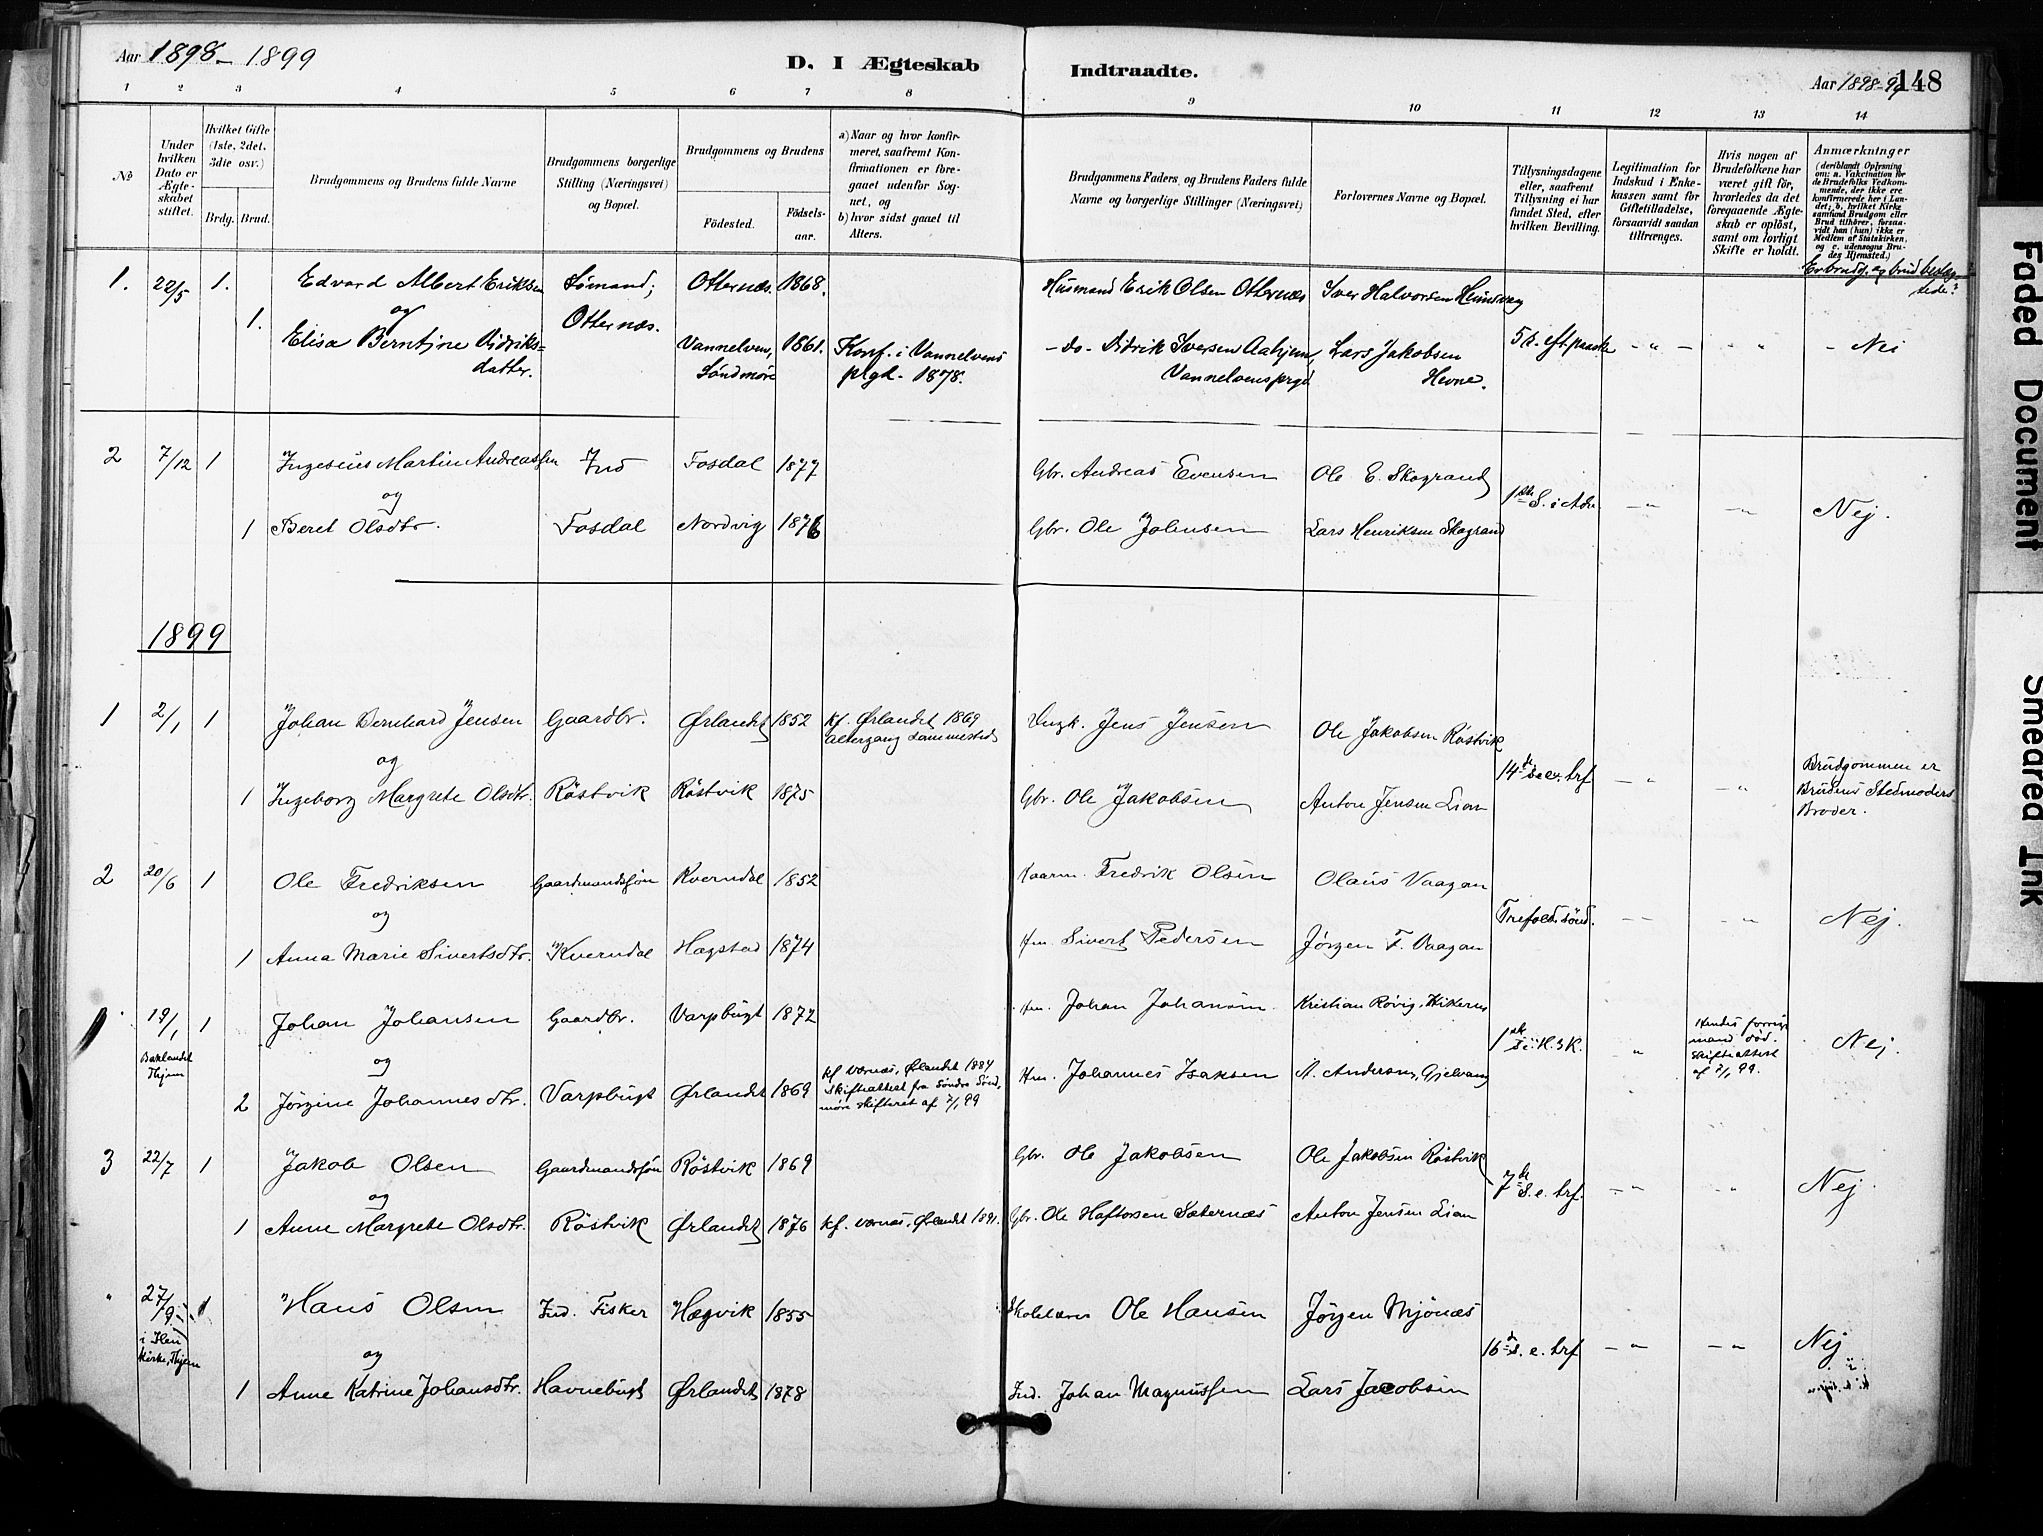 Aar 1898-1899
D. I Ægteskab Indtraadte.
Aar 1898-99 148
1 2 3 4 5 6 7 8 9 10 11 12 13 14
No
Under hvilken Dato er Ægteskabet stiftet.
Hvilket Gifte (1ste, 2det, 3die osv.)
Brdg. Brud.
Brudgommens og Brudens fulde Navne
Brudgommens borgerlige Stilling (Næringsvei) og Bopæl.
Brudgommens og Brudens
Fødested. Fødselsaar.
a) Naar og hvor konfirmeret, saafremt Konfirmationen er foregaaet udenfor Sognet, og
b) hvor sidst gaaet til Alters.
Brudgommens Faders og Brudens Faders fulde Navne og borgerlige Stillinger (Næringsvei)
Forlovernes Navne og Bopæl.
Tillysningsdagene eller, saafremt Tillysning ei har fundet Sted, efter hvilken Bevilling.
Legitimation for Indskud i Enkekassen samt for Giftetilladelse, forsaavidt saadan tiltrænges.
Hvis nogen af Brudefolkene har været gift før, hvorledes da det foregaaende Ægteskab er opløst, samt om lovligt Skifte er holdt.
Anmærkninger
(deriblandt Oplysning om: a. Vakcination for de Brudefolks Vedkommende, der ikke ere konfirmerede her i Landet; b. hvilket Kirkesamfund Brudgom eller Brud tilhører, forsaavidt han (hun) ikke er Medlem af Statskirken, og c. udensogns Brudes Hjemsted.)
Er brudg. og brud beslægtede?
1. 22/5 1. Edvard Albert Eriksen Sømand; Otternæs. 1868. Husmand Erik Olsen Otternæs Iver Halvorsen
og Otternæs.
1. Elise Berntine Didriks= Vannelven, 1861. Konf. i Vannelvens -do- Didrik Iversen Aahjem, Lars Jakobsen 5 s. eft. paaske - " - - " - Nei
datter. Søndmøre plgd. 1878. Vannelvens prgd Hevne.
2 7/12 1 Ingeseius Martin Andreassen Ind Fosdal 1877 Gbr. Andreas Evensen Ole E. Skogrand
og 1ste S. i Adv. - " - " Nej.
1 Beret Olsdtr. Fosdal Nordvig 1876 Gbr. Ole Johnsen Lars Henriksen Skogrand
1899
1 2/1 1 Johan Bernhard Jensen Gaardbr. Ørlandet 1852 kf. Ørlandet 1869 Jens Jensen Ole Jakobsen Röstvik
Altergang sammesteds
og 14de s. e. trf. - " - " Brudgommen er
1 Ingeborg Margrete Olsdtr. Röstvik Röstvik 1875 Gbr. Ole Jakobsen Anton Jensen Lian Brudens Stedmoders
Broder.
2 20/6 1 Ole Fredriksen Gaardmandssön Kverndal 1852 Kaarm. Fredrik Olsen Olaus Vaagan
og Trefold. sönd. - " - " Nej.
1 Anna Marie Sivertsdtr. Kverndal Hagstad 1874 Hm. Sivert Pedersen Jörgen F. Vaagan
" 19/1 1 Johan Johansen Gaardbr. Varpbugt 1872 Hm. Johan Johansen Kristian Rövig,
Baklandet og 1ste s. i H. 3 K. " Hendes forrige Nej.
Thjem mand död.
Skifteattest
af 7/1 99.
2 Jörgine Johannesdtr. Varpbugt Ørlandet 1869 kf. værnæs, Ørlandet 1884 Hm. Johannes Isaksen A. Andersen, Gjelvang
Skifteattest fra Söndre Sönd.
möre skifteret af 7/1 99
3 22/7 1 Jakob Olsen Gaardmandssön Röstvik 1869 Gbr. Ole Jakobsen Ole Jakobsen Röstvik
og 7de s. e. trf. - " - " Nej.
1 Anne Margrete Olsdtr. Röstvik Ørlandet 1876 kf. værnæs, Ørlandet 1891. Gbr. Ole Haftorsen Sæternæs Anton Jensen Lian
" 27/9 1 Hans Olsen Ind. Fisker Hegvik 1855 Skolelærer Ole Hansen Jörgen Mjönæs
i Ilen
Kirke, Thjem og 16de s. e. trf - " - " Nej
1 Anne Katrine Johansdtr. Havnebugt Ørlandet 1878 Ind. Johan Magnussen Lars Jacobsen
Faded Document
Smeared Ink